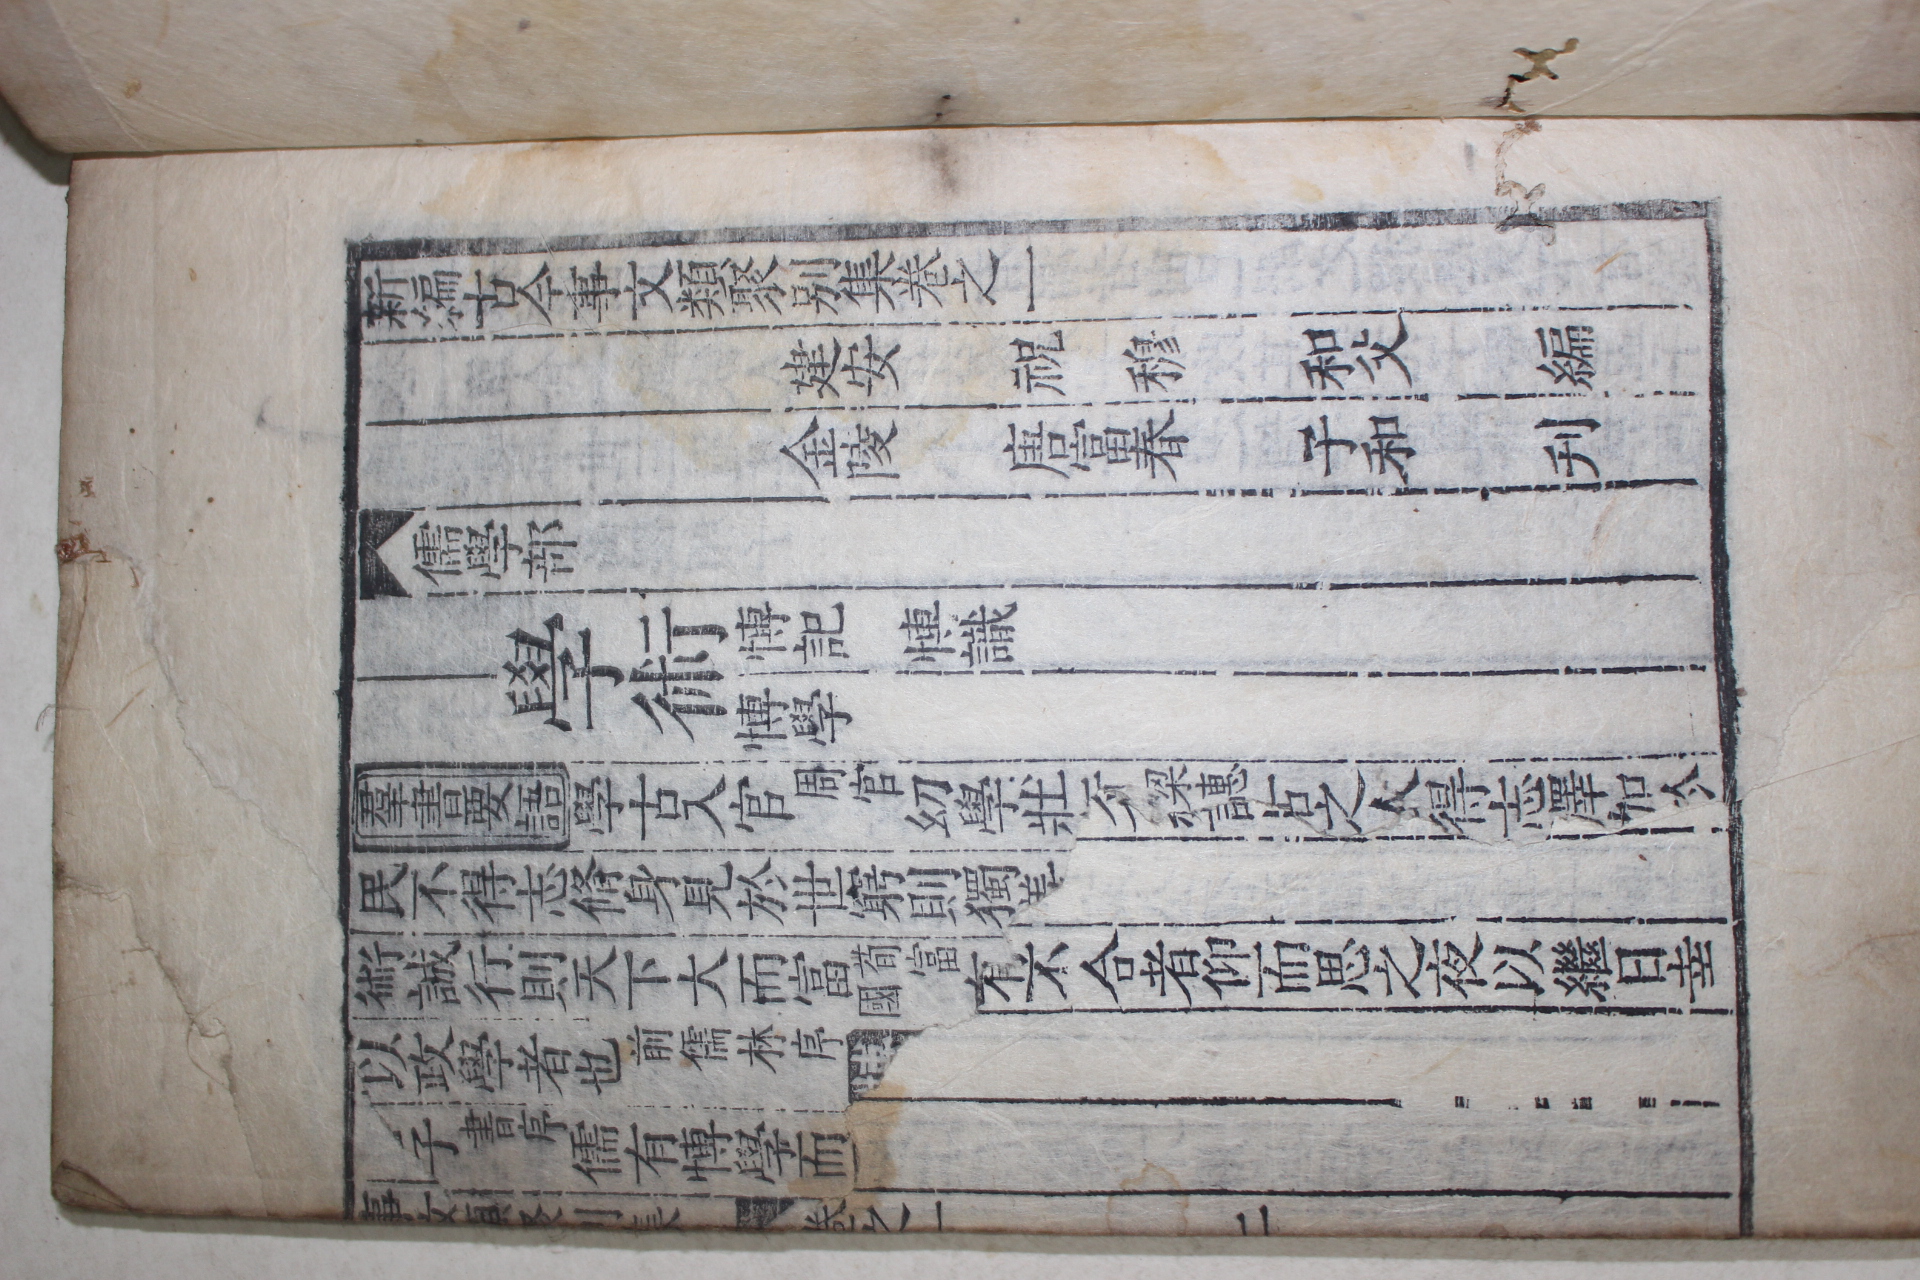 新編古今事文類聚別集卷之一
建安 祝 穆 和父 編
金陵 唐富春 子和 刊
儒學部
學術 愽記 愽識 愽學
羣書要語 學古入官 周官 幼學壯 梁惠 古之人得志澤加於
民不得志脩身見於世窮則獨善
術誠行則天下大而富 荀富國 有不合者仰而思之夜以繼日幸
以政學者也 前儒林序
子 書序 儒有愽學而
事文類聚別集 卷之一 二